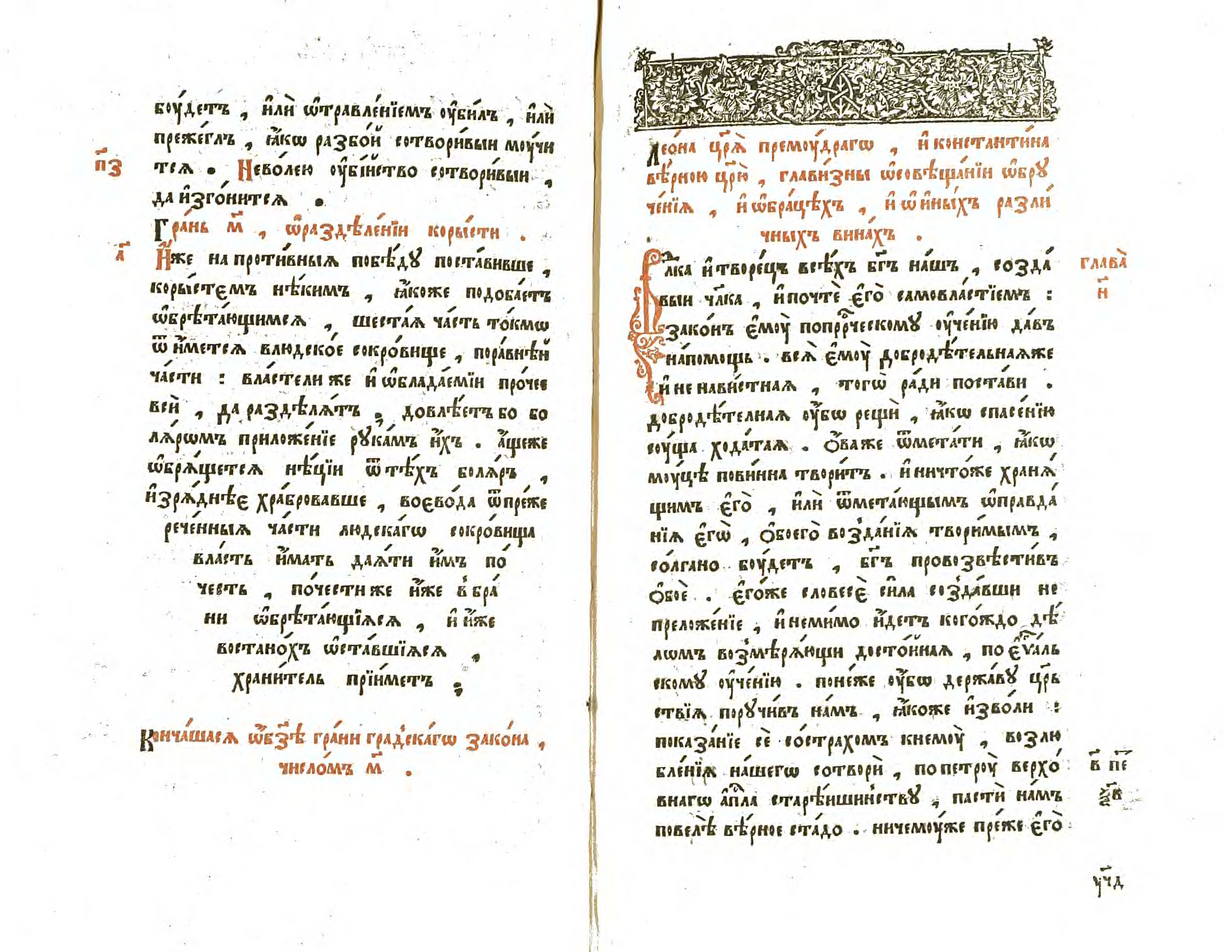 боу́детъ , и҆лѝ ѡ҆травле́нїемъ оу҆би́лъ , и҆лѝ
прежегл̀ъ , ꙗ҆́кѡ разбо́й сотвори́выи моучи
п҃з
тсѧ . Нево́лею оу҆бі́иство сотвори́выи ,
да и҆зго́нитсѧ .
Гра́нь м҃ , ѡ҆раздѣле́нїи коры́сти .
а҃
И҆́же на проти́вныѧ побѣ́ду поста́вивше ,
коры́стемъ нѣ́кимъ , ꙗ҆́коже подоба́етъ
ѡ҆брѣта́ющимсѧ , шеста́ѧ ча́сть то́кмѡ
ѿи́метсѧ влюдско́е сокро́вище , пора́внѣй
ча́сти : вла́стели же и҆ ѡ҆блада́емїи про́чее
всѝ , да раздѣлѧ́тъ , довлѣ́етъ бо бо
лѧ́рѡмъ приложе́нїе рꙋка́мъ и҆́хъ . а҆́щеже
ѡ҆брѧ́щетсѧ нѣ́цїи ѿ тѣ́хъ болѧ́ръ ,
и҆зрѧ́днѣе хра́бровавше , воево́да ѿпре́же
рече́нныѧ ча́сти людска́гѡ сокро́вища
вла́сть и҆́мать даѧ́ти и҆̀мъ по́
че́сть , по́чести же и҆́же в бра́
ни ѡ҆брѣта́ющїѧсѧ , и҆ и҆̀же
востано́хъ ѡ҆ста́вшїѧсѧ ,
храни́тель прїи́метъ ;
Конча́шасѧ ѡ҆б̾зѣ́ гра́ни гра́дскагѡ зако́на ,
число́мъ м҃ .
Лео́на цр҃ѧ̀ премоу́драгѡ , и҆ константи́на
вѣ́рною цр҃ю̀ , главизны ѡ҆совѣща́нїи ѡ҆брꙋ
че́нїѧ , и҆ ѡ҆бра́цѣхъ , и҆ ѡ҆ и҆ны́хъ разли́
чныхъ вина́хъ .
глава̀
и҃
Влⷣка и҆ творе́цъ всѣ́хъ бг҃ъ на́шъ , созда́
выи чл҃ка , и҆ почтѐ є҆го̀ самовла́стїемъ :
зако́нъ є҆моу̀ попроⷪ҇ческомꙋ оу҆че́нїю да́въ
на́помощь . всѧ̀ є҆моу̀ добродѣ́тельнаѧже
и҆ ненави́стнаѧ , тогѡ̀ ра́ди поста́ви .
добродѣ́телнаѧ оу҆́бѡ рещѝ , ꙗ҆́кѡ спасе́нїю
соу́ща хода́таѧ . ѻ҆́ва же ѿмета́ти , ꙗ҆́кѡ
моу́цѣ пови́нна твори́тъ . и҆ ничто́же хранѧ́
щимъ є҆го̀ , и҆лѝ ѿмета́ющымъ ѡ҆правда́
нїѧ є҆гѡ̀ , ѻ҆боего̀ возда́нїѧ твори́мымъ ,
со́лгано боу́детъ , бг҃ъ провозвѣсти́въ
ѻ҆́бое . є҆го́же словесѐ си́ла созда́вши не
преложе́нїе , и҆ неми́мо и҆́детъ кого́ждо дѣ́
лѡмъ возмѣ́рѧющи досто́йнаѧ , по є҆ѵⷢ҇аль
скомꙋ оу҆че́нїю . поне́же оу҆́бѡ держа́вꙋ цр҃ь
ствїѧ порꙋчи́въ на́мъ , ꙗ҆́коже и҆зво́ли :
показа́нїе сѐ со́страхомъ кнемоу̀ , возлю
бле́нїѧ на́шегѡ сотворѝ , по петроу̀ верхо́
в҃ пе҃
внагѡ а҆пⷭ҇ла старѣ́ишинствꙋ , пастѝ на́мъ
повелѣ̀ вѣ́рное ста́до . ничемоу́же пре́же є҆го̀
уч҃д